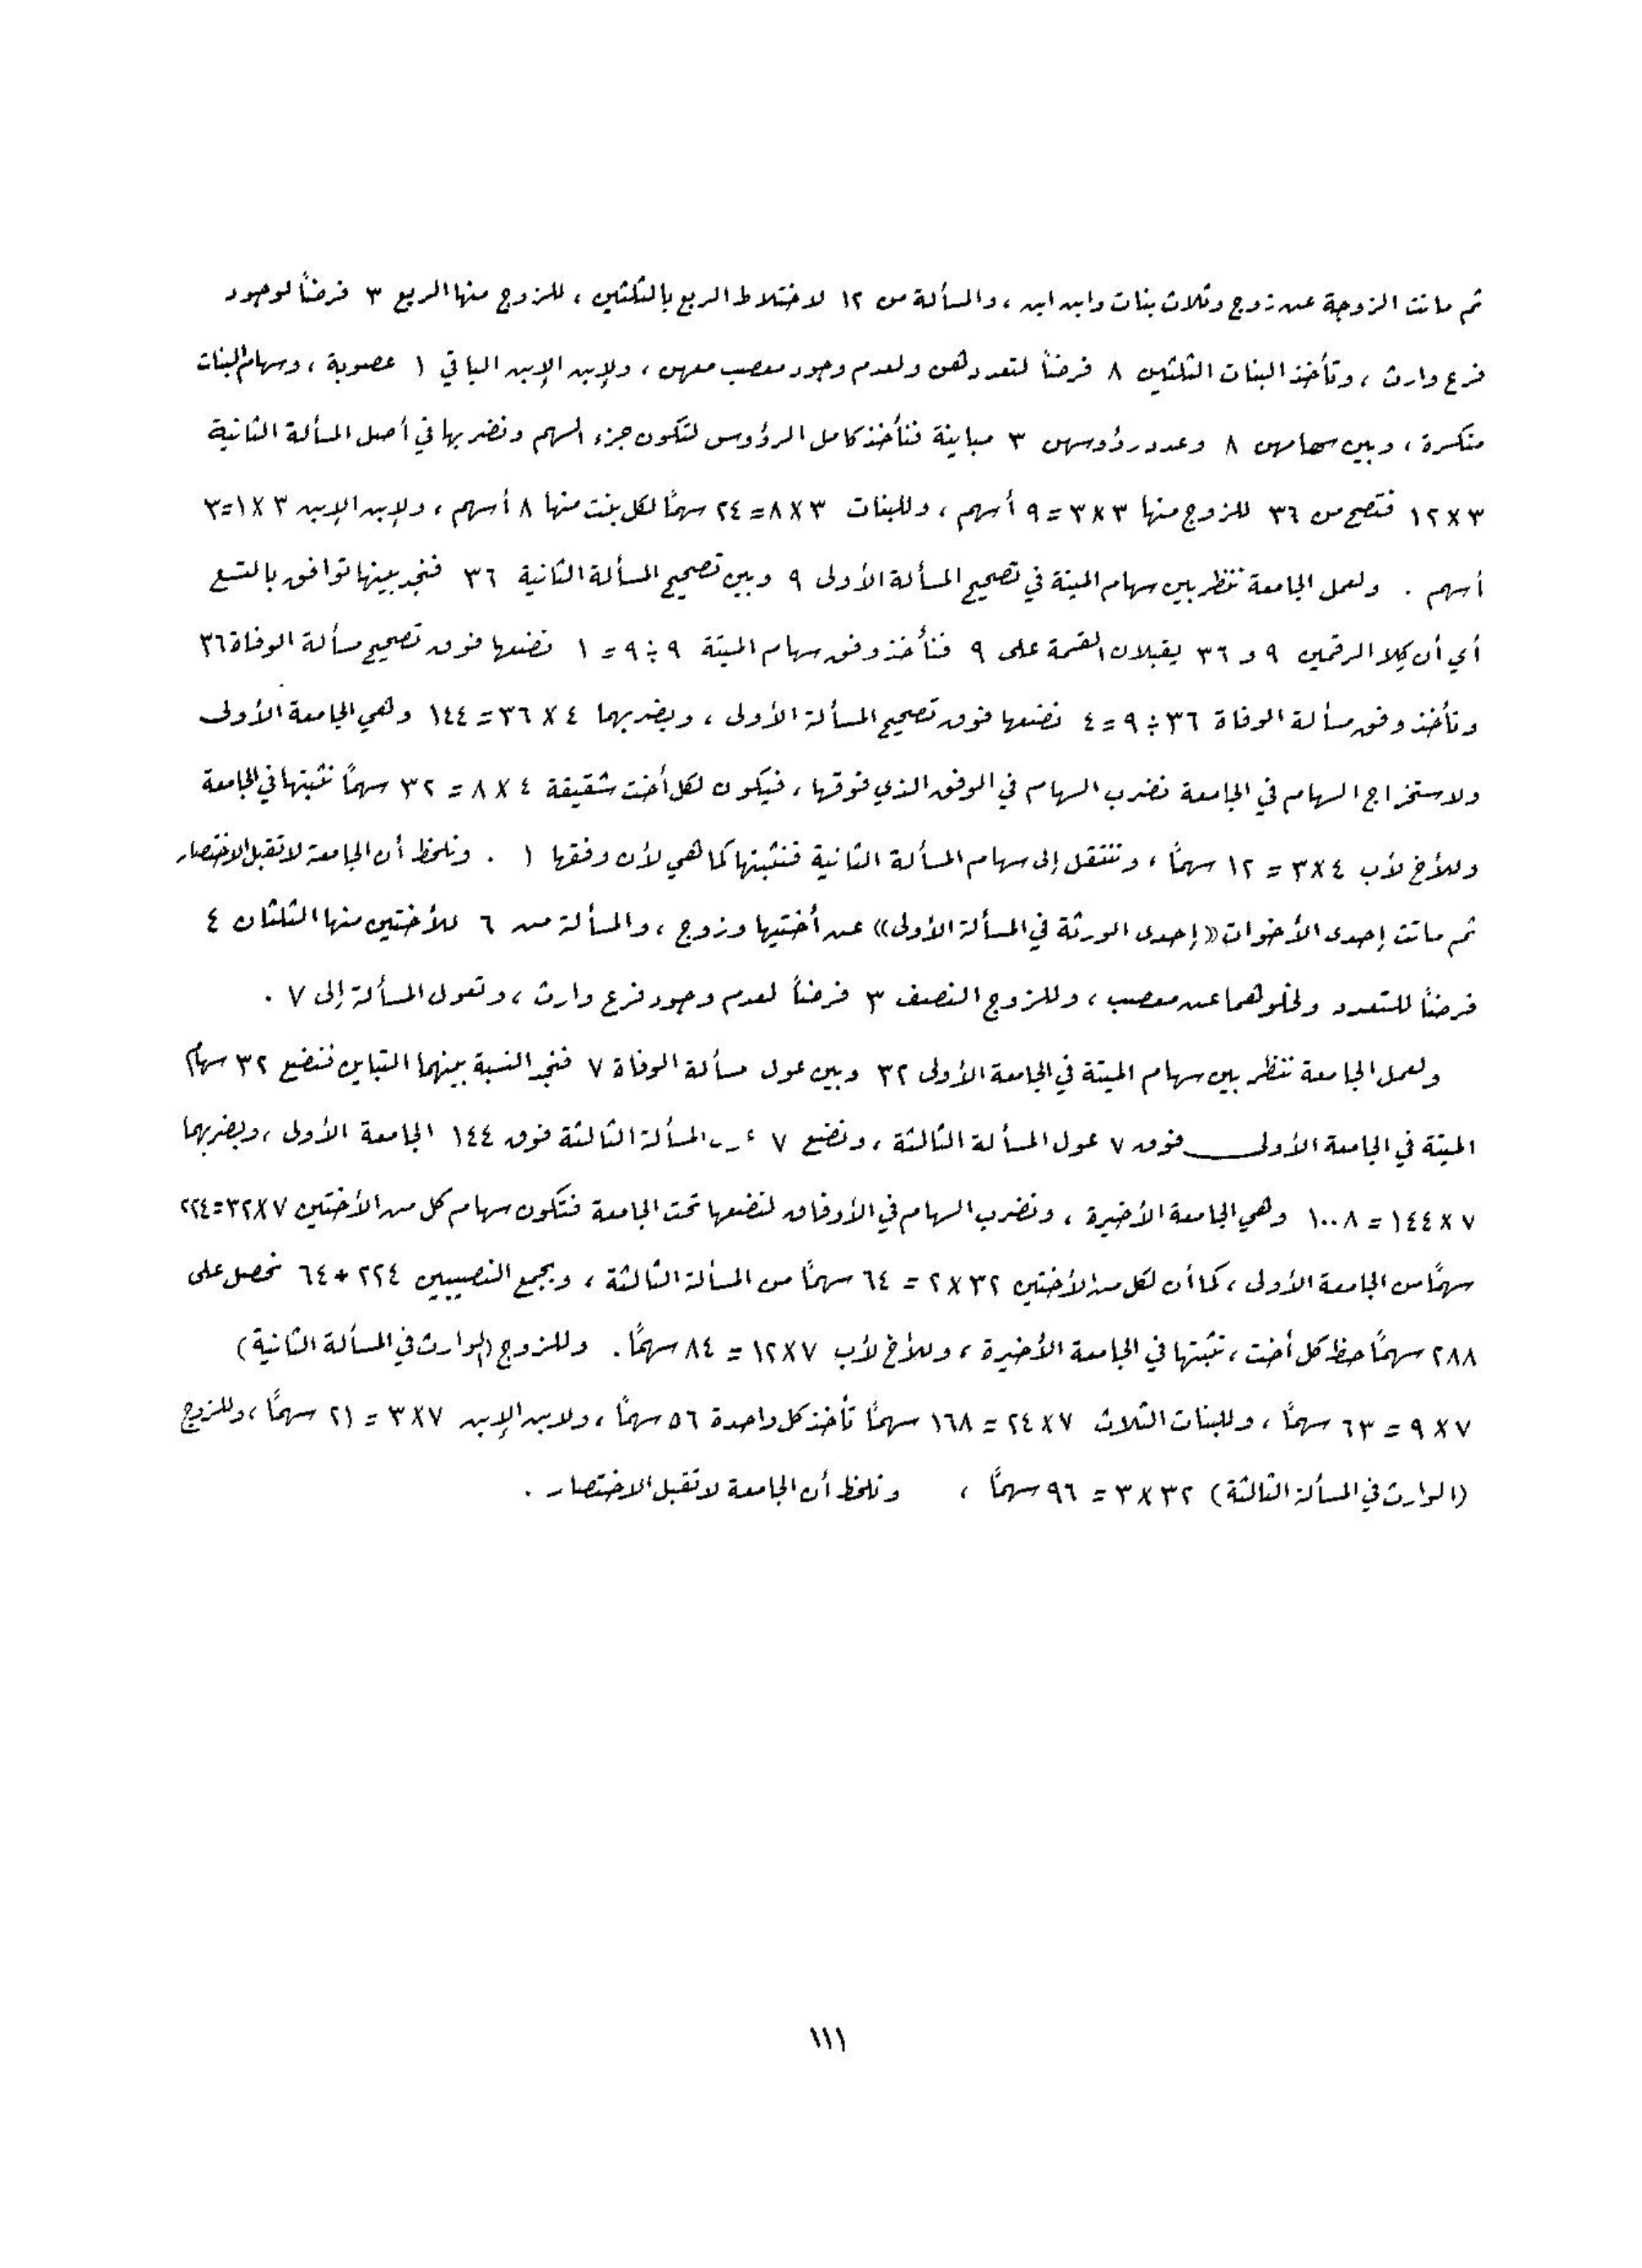 ثم ماتت الزوجة عن زوج وثلاث بنات وابن ابن ، والمسألة من ١٢ لاختلاط الربع بالثلثين ، للزوج منها الربع ٣ فرضاً لوجود
فرع وارث ، وتأخذ البنات الثلثين ٨ فرضاً لتعددهن ولعدم وجود معصب معهن ، ولابن الإبن الباقي ١ عصوبة ، وسهام البنات
منكسرة ، وبين سهامهن ٨ وعدد رؤوسهن ٣ مباينة فنأخذ كامل الرؤوس لتكون جزء السهم ونضربها في أصل المسألة الثانية
٣ × ١٢ فتصح من ٣٦ للزوج منها ٣ × ٣ = ٩ أسهم ، وللبنات ٣ × ٨ = ٢٤ سهمًا لكل بنت منها ٨ أسهم ، ولابن الإبن ٣ × ١ = ٣
أسهم . ولعمل الجامعة ننظر بين سهام الميتة في تصحيح المسألة الأولى ٩ وبين تصحيح المسألة الثانية ٣٦ فنجد بينها توافق بالتسع
أي أن كِلا الرقمين ٩ و ٣٦ يقبلان القسمة على ٩ فنأخذ وفق سهام الميتة ٩ ÷ ٩ = ١ نضعها فوق تصحيح مسألة الوفاة ٣٦
ونأخذ وفق مسألة الوفاة ٣٦ ÷ ٩ = ٤ نضعها فوق تصحيح المسألة الأولى ، وبضربهما ٤ × ٣٦ = ١٤٤ وهي الجامعة الأولى
ولاستخراج السهام في الجامعة نضرب السهام في الوفق الذي فوقها ، فيكون لكل أخت شقيقة ٤ × ٨ = ٣٢ سهمًا نثبتها في الجامعة
وللأخ لأب ٤ × ٣ = ١٢ سهمًا ، وننتقل إلى سهام المسألة الثانية فنثبتها كما هي لأن وفقها ١ . ونلحظ أن الجامعة لا تقبل الاختصار
ثم ماتت إحدى الأخوات « إحدى الورثة في المسألة الأولى » عن أختيها وزوج ، والمسألة من ٦ للأختين منها الثلثان ٤
فرضاً للتعدد ولخلوهما عن معصب ، وللزوج النصف ٣ فرضاً لعدم وجود فرع وارث ، وتعول المسألة إلى ٧ .
ولعمل الجامعة ننظر بين سهام الميتة في الجامعة الأولى ٣٢ وبين عول مسألة الوفاة ٧ فنجد النسبة بينهما التباين فنضع ٣٢ سهام
الميتة في الجامعة الأولى فوق ٧ عول المسألة الثالثة ، ونضع ٧ المسألة الثالثة فوق ١٤٤ الجامعة الأولى ، وبضربهما
٧ × ١٤٤ = ١٠٠٨ وهي الجامعة الأخيرة ، ونضرب السهام في الأوفاق لنضعها تحت الجامعة فتكون سهام كل من الأختين ٧ × ٣٢ = ٢٢٤
سهمًا من الجامعة الأولى ، كما أن لكل من الأختين ٣٢ × ٢ = ٦٤ سهمًا من المسألة الثالثة ، وبجمع النصيبين ٢٢٤ + ٦٤ نحصل على
٢٨٨ سهمًا حظ كل أخت ، نثبتها في الجامعة الأخيرة ، وللأخ لأب ٧ × ١٢ = ٨٤ سهمًا . وللزوج (الوارث في المسألة الثانية)
٧ × ٩ = ٦٣ سهمًا ، وللبنات الثلاث ٧ × ٢٤ = ١٦٨ سهمًا تأخذ كل واحدة ٥٦ سهمًا ، ولابن الإبن ٧ × ٣ = ٢١ سهمًا ، وللزوج
(الوارث في المسألة الثالثة) ٣٢ × ٣ = ٩٦ سهمًا ، ونلحظ أن الجامعة لا تقبل الاختصار .
١١١